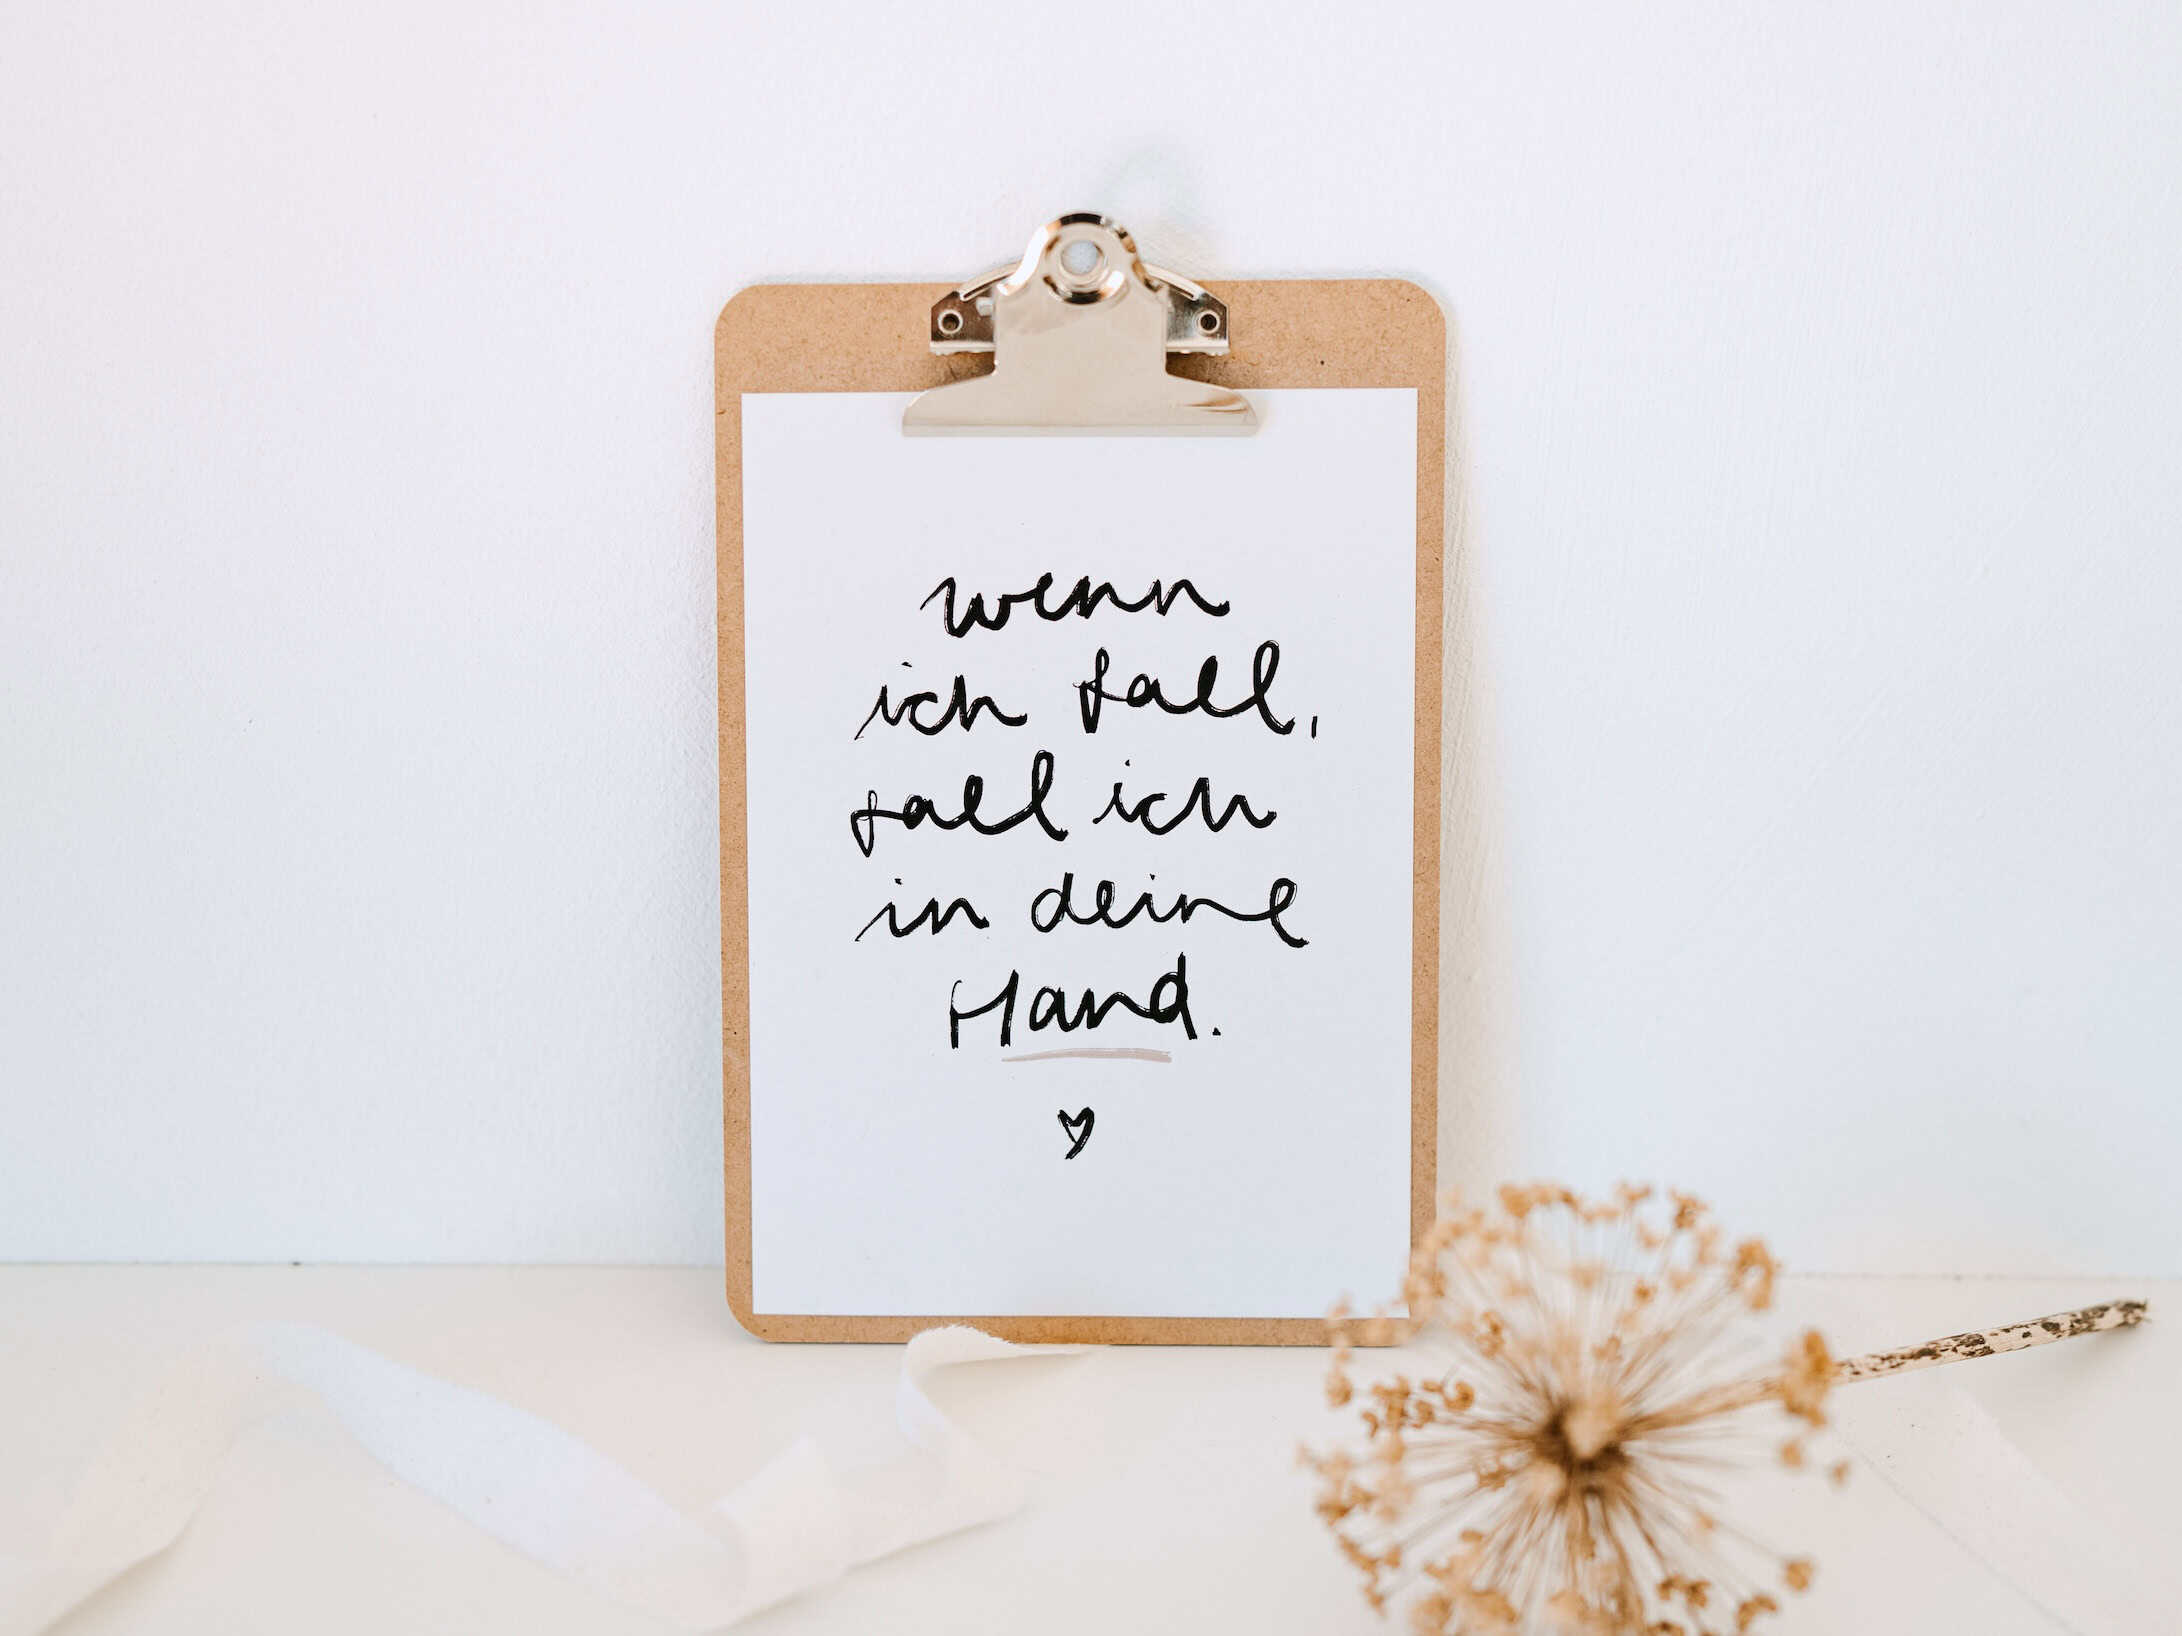 wenn
ich fall,
fall ich
in deine
Hand.